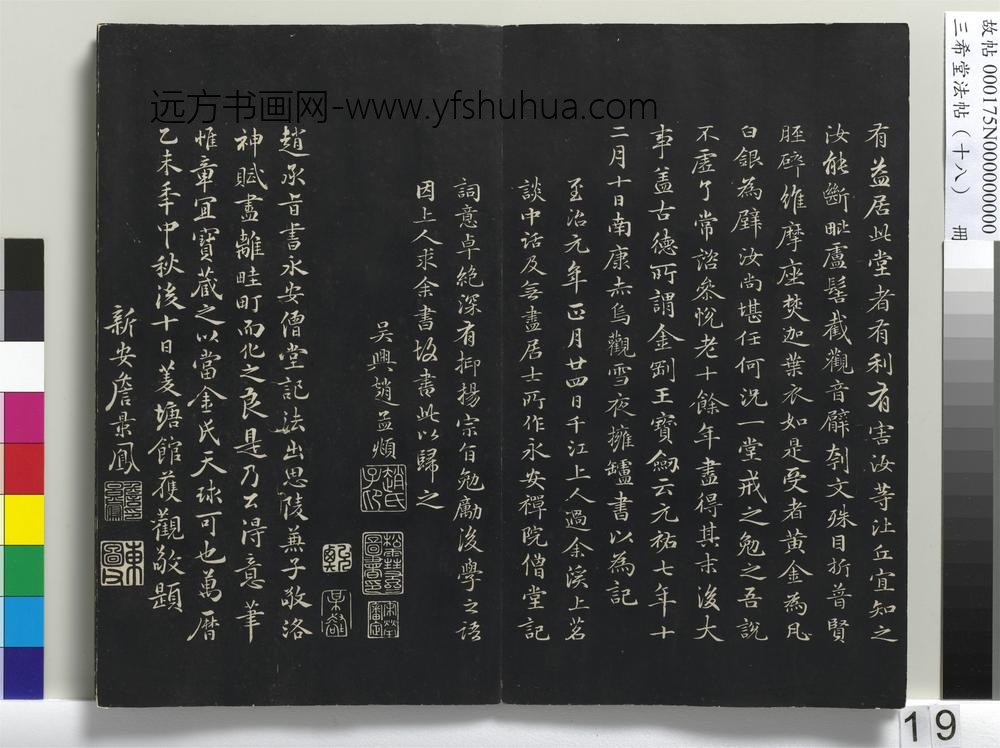 有益居此堂者有利有害汝等沚丘宜知之
汝能斷毗盧髻截觀音臂刳文殊目折普賢
脛碎維摩座焚迦葉衣如是受者黄金為凡
白銀為壁汝尚堪任何況一堂戒之勉之吾說
不虛了常諮參悅老十餘年盡得其末後大
事盖古德所謂金剛王寶劒云元祐七年十
二月十日南康赤烏觀雪夜擁罏書以為記
至冶元年正月廿四日千江上人過余溪上茗
談中話及无盡居士所作永安禪院僧堂記
詞意卓絶深有抑揚宗旨勉勵後學之語
因上人求余書故書此以歸之
吳興趙孟頫
趙氏子印
松雪齋圖書印
趙承旨書永安僧堂記法出思陵兼子敬洛
神賦盡離畦町而化之良是乃公得意筆
惟章宜寶藏之以當金氏天球可也萬曆
乙未年中秋後十日菱塘館獲觀敬題
新安詹景鳳
東圖父
远方书画网-www.yfshuhua.com
故帖 000175N000000000
三希堂法帖（十八） 冊
19